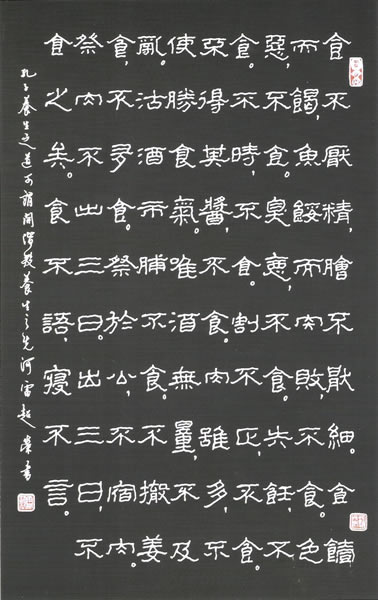 食不厭精,膾不厭細。食饐
而餲,魚餒而肉敗,不食。色
惡,不食。臭惡,不食。失飪,不
食。不時,不食。割不正,不食。
不得其醬,不食。肉雖多,不
使勝食氣。唯酒無量,不及
亂。沽酒市脯不食。不撤姜
食,不多食。祭於公,不宿肉。
祭肉不出三日。出三日,不
食之矣。食不語,寢不言。
孔子養生之道可謂開養生之先河雷超榮書